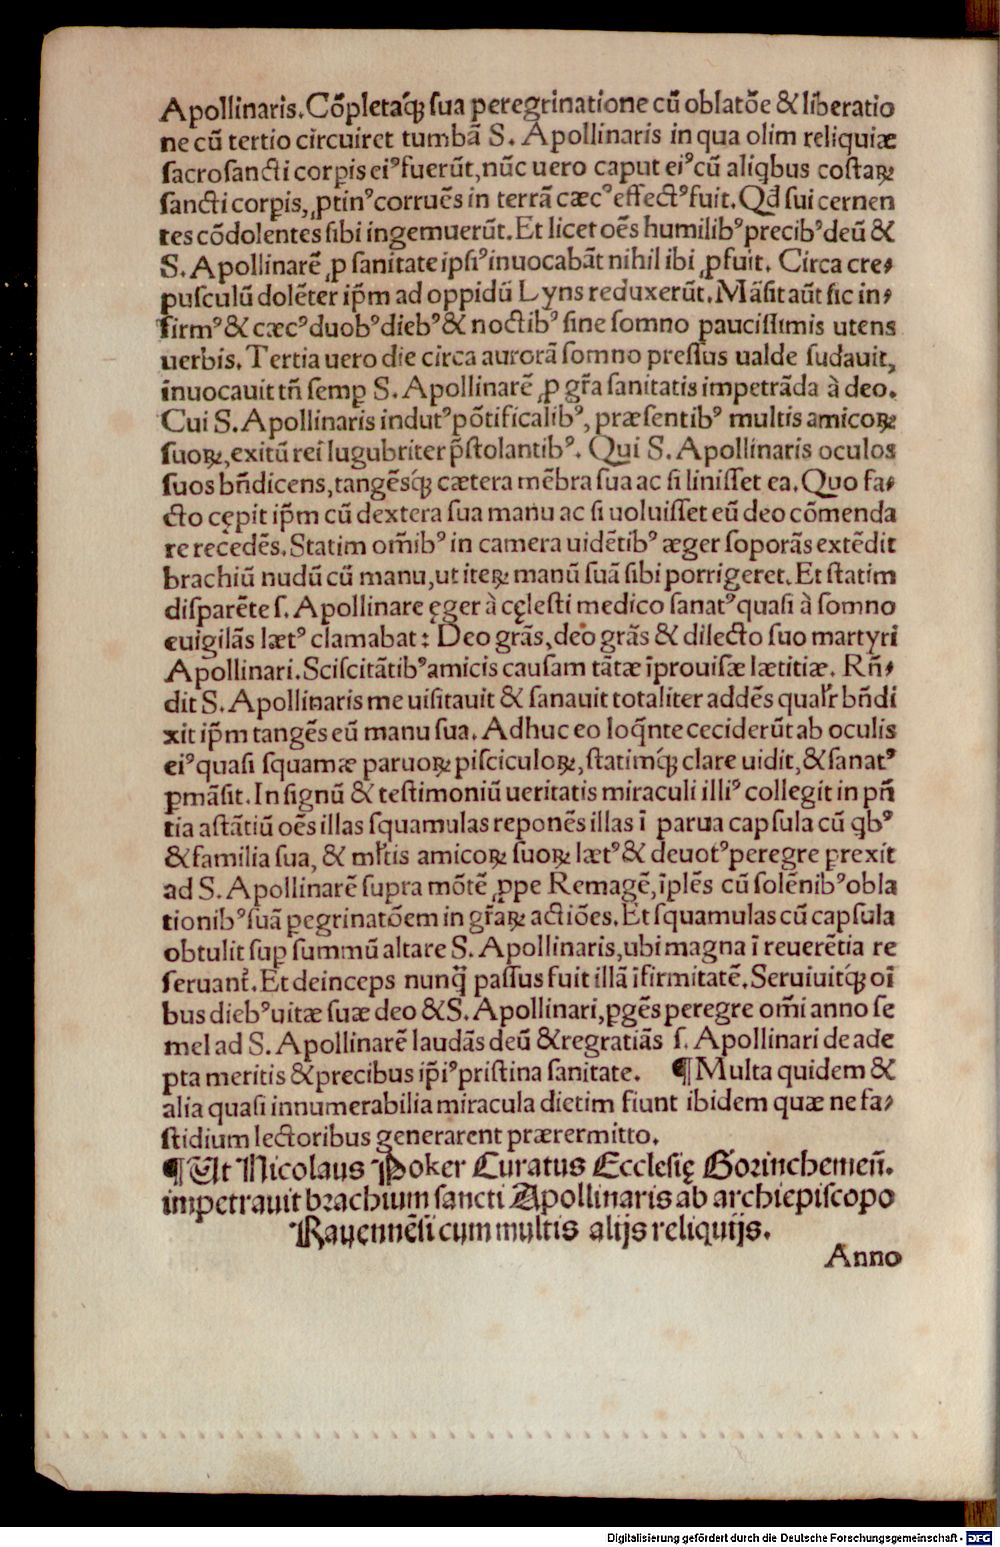 Apollinaris.Cōpletaq́ꝫ ſua peregrinatione cū oblatōe & liberatio
ne cū tertio circuiret tumbā S. Apollinaris in qua olim reliquiæ
ſacroſancti corꝑis eiꝰ fuerūt,nūc uero caput eiꝰ cū aliꝗbus coſtaꝝ
ſancti corꝑis, ꝓtinꝰ corruēs in terrā cæcꝰ effectꝰ fuit. Qď ſui cernen
tes cōdolentes ſibi ingemuerūt. Et licet oēs humilibꝰ precibꝰ deū &
S. Apollinarē ꝓ ſanitate ipſiꝰ inuocabāt nihil ibi ꝓfuit. Circa cre⸗
puſculū dolēter ip̄m ad oppidū Lyns reduxerūt. Māſit aūt ſic in⸗
firmꝰ & cæcꝰ duobꝰ diebꝰ & noctibꝰ ſine ſomno pauciſſimis utens
uerbis. Tertia uero die circa aurorā ſomno preſſus ualde ſudauit,
inuocauit tn̄ ſemꝑ S. Apollinarē ꝓ gr̄a ſanitatis impetrāda à deo.
Cui S. Apollinaris indutꝰ pōtificalibꝰ, præſentibꝰ multis amicoꝝ
ſuoꝝ,exitū rei lugubriter p̄ſtolantibꝰ. Qui S. Apollinaris oculos
ſuos bn̄dicens,tangēsq́ꝫ cætera mēbra ſua ac ſi liniſſet ea. Quo fa⸗
cto cępit ip̄m cū dextera ſua manu ac ſi uoluiſſet eū deo cōmenda
re recedēs. Statim om̄ibꝰ in camera uidētibꝰ æger ſoporās extēdit
brachiū nudū cū manu,ut iteꝝ manū ſuā ſibi porrigeret. Et ſtatim
diſparēte ſ. Apollinare ęger à cęleſti medico ſanatꝰ quaſi à ſomno
euigilās lætꝰ clamabat: Deo grās, deo grās & dilecto ſuo martyri
Apollinari. Sciſcitātibꝰ amicis cauſam tātæ īprouiſæ lætitiæ. Rn̄⸗
dit S. Apollinaris me uiſitauit & ſanauit totaliter addēs qualr̄ bn̄di
xit ip̄m tangēs eū manu ſua. Adhuc eo loꝗ̄nte ceciderūt ab oculis
eiꝰ quaſi ſquamæ paruoꝝ piſciculoꝝ, ſtatimq́ꝫ clare uidit,& ſanatꝰ
ꝑmāſit. In ſignū & teſtimoniū ueritatis miraculi illiꝰ collegit in pn̄
tia aſtātiū oēs illas ſquamulas reponēs illas ī parua capſula cū ꝗbꝰ
& familia ſua, & ml̄tis amicoꝝ ſuoꝝ lætꝰ & deuotꝰ peregre ꝑrexit
ad S. Apollinarē ſupra mōtē ꝓpe Remagē,īplēs cū ſolēnibꝰ obla
tionibꝰ ſuā ꝑegrinatōem in gr̄aꝝ actiōes. Et ſquamulas cū capſula
obtulit ſuꝑ ſummū altare S. Apollinaris, ubi magna ī reuerētia re
ſeruant̄. Et deinceps nunꝗ̄ paſſus fuit illā īfirmitatē. Seruiuitq́ꝫ oī
bus diebꝰ uitæ ſuæ deo & S. Apollinari, ꝑgēs peregre om̄i anno ſe
mel ad S. Apollinarē laudās deū & regratiās ſ. Apollinari de ade
pta meritis & precibus ip̄iꝰ priſtina ſanitate. ¶ Multa quidem &
alia quaſi innumerabilia miracula dietim fiunt ibidem quæ ne fa⸗
ſtidium lectoribus generarent prærermitto.
¶ Ut Nicolaus Poker Curatus Eccleſię Gorinchemen̄.
impetrauit brachium ſancti Apollinaris ab archiepiſcopo
Rauennēſi cum multis alijs reliquijs.
Anno
Digitalisierung gefördert durch die Deutsche Forschungsgemeinschaft - DFG